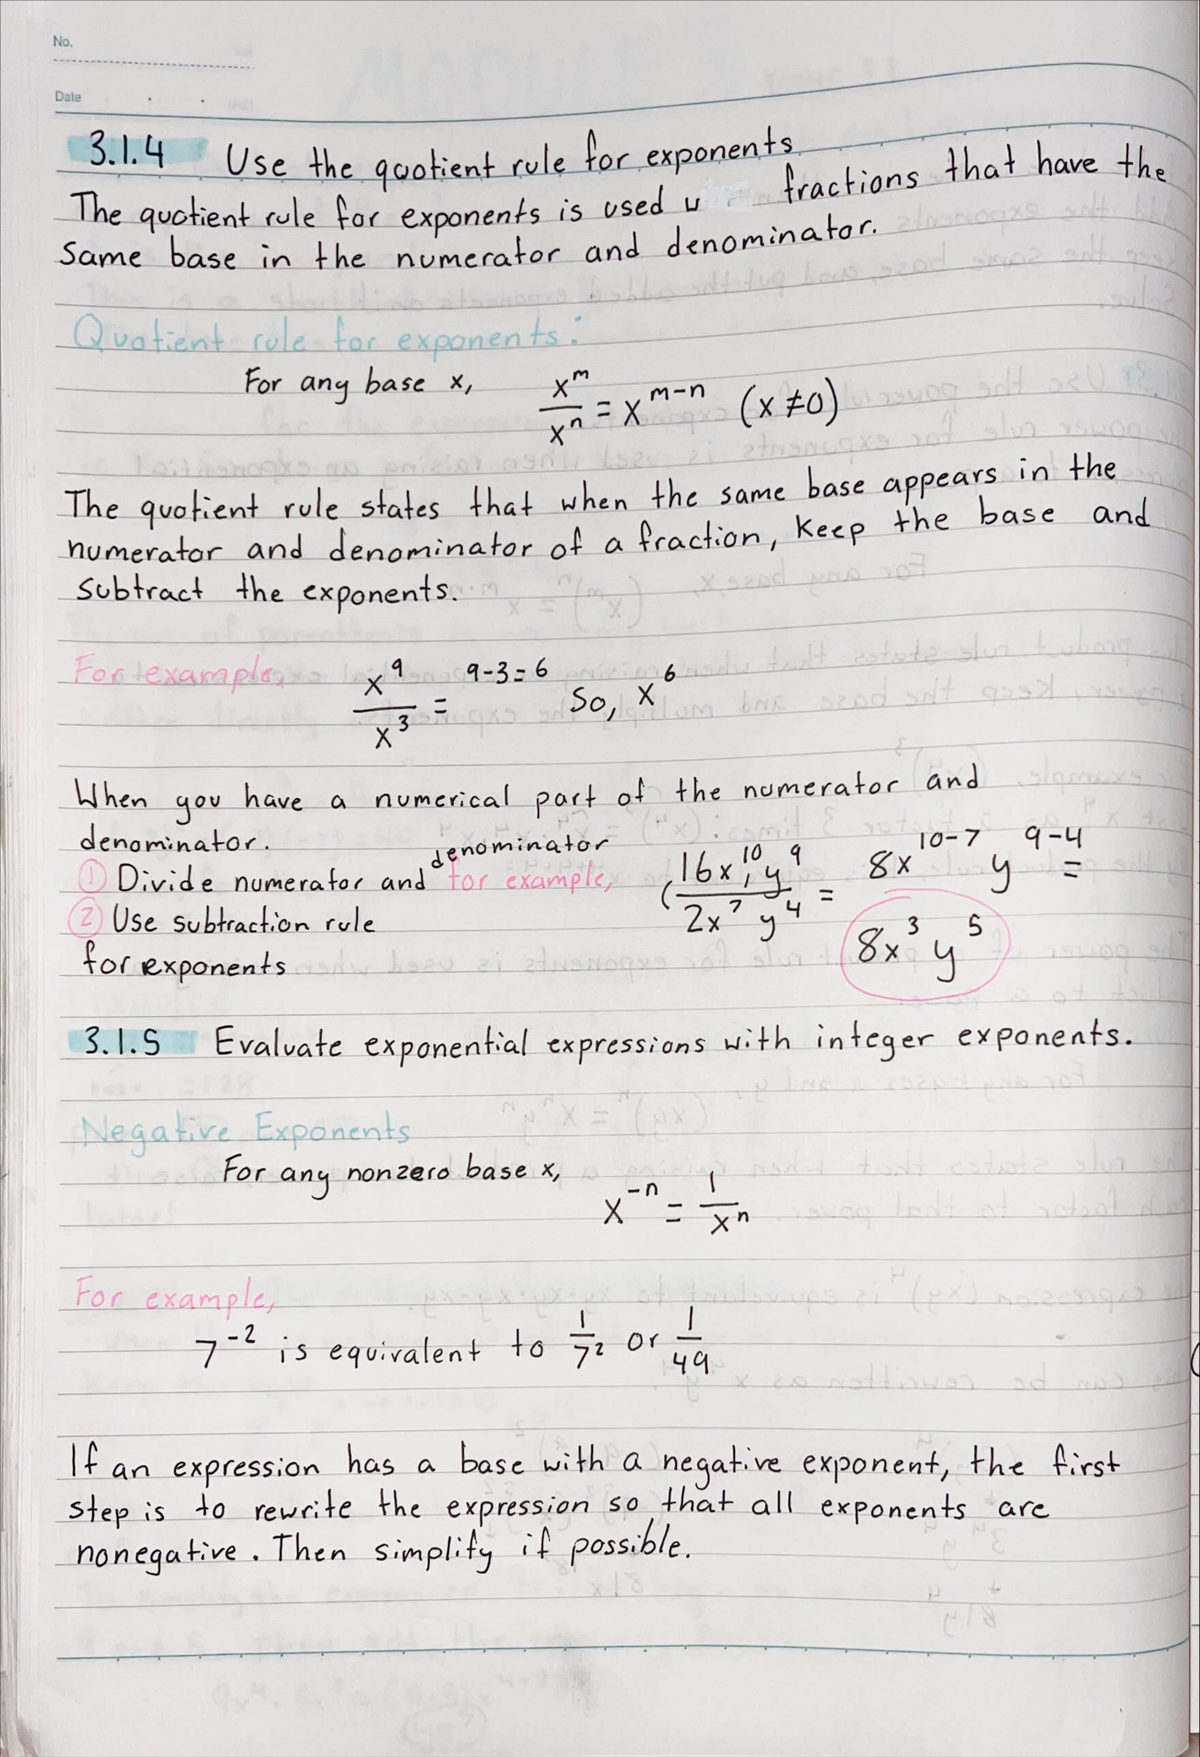 No.
Date
3.1.4 Use the quotient rule for exponents
The quotient rule for exponents is used fractions that have the
Same base in the numerator and denominator.
Quotient rule for exponents:
For any base x, x^m/x^n = x^(m-n) (x ≠ 0)
The quotient rule states that when the same base appears in the
numerator and denominator of a fraction, keep the base and
subtract the exponents.
For example, x^9/x^3 = 9-3=6 So, x^6
When you have a numerical part of the numerator and
denominator.
① Divide numerator and denominator for example, 16x^10 y^9 / 2x^7 y^4 = 8x^(10-7) y^(9-4) =
② Use subtraction rule
for exponents 8x^3 y^5
3.1.5 Evaluate exponential expressions with integer exponents.
Negative Exponents
For any nonzero base x,
x^-n = 1/x^n
For example,
7^-2 is equivalent to 1/7^2 or 1/49
If an expression has a base with a negative exponent, the first
step is to rewrite the expression so that all exponents are
nonegative. Then simplify if possible.